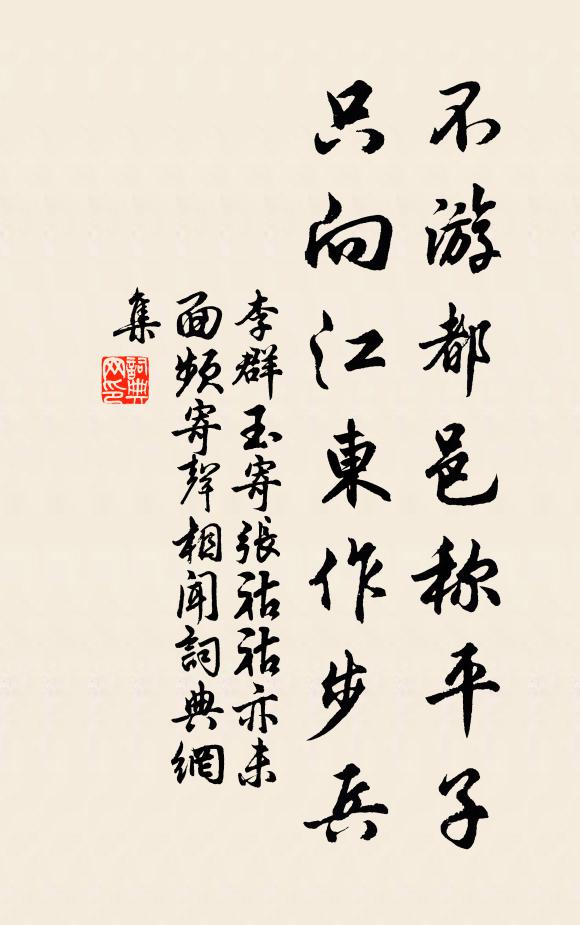 不游都邑称平子
只向江東作步兵
李群玉寄張祜祜亦未
面頻寄聲相聞詞典網
集
詞典
网印